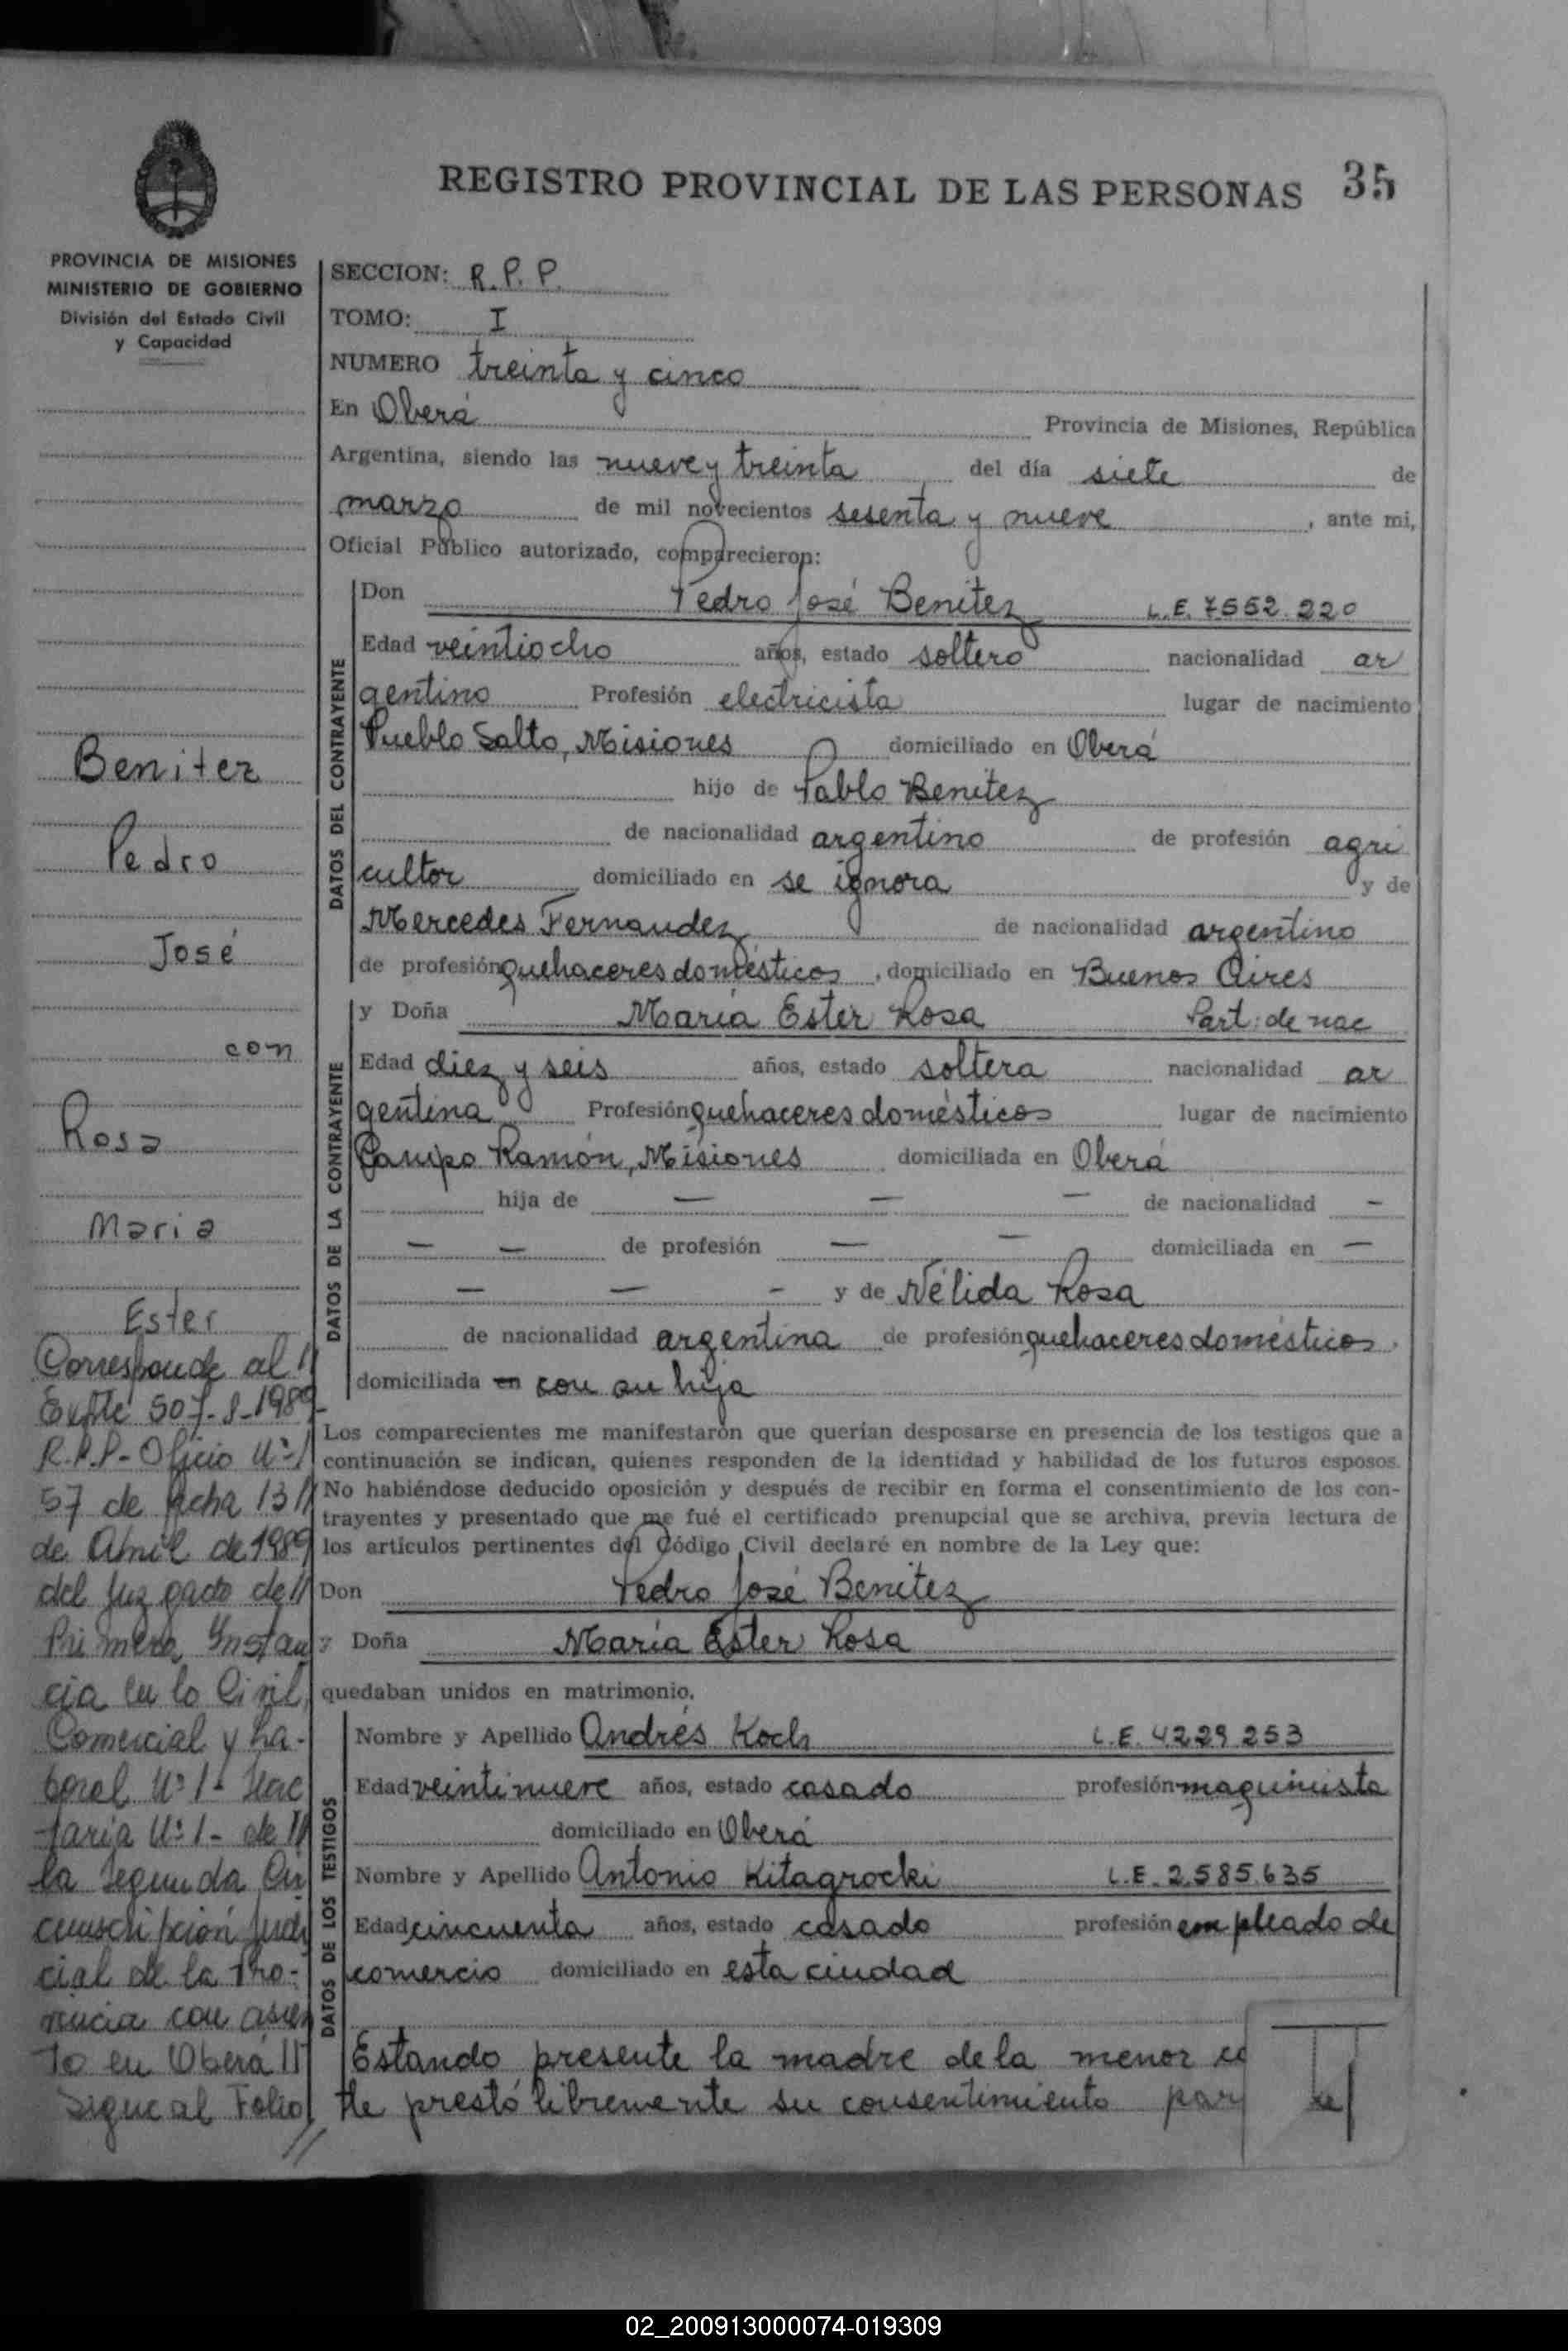 REGISTRO PROVINCIAL DE LAS PERSONAS 35
PROVINCIA DE MISIONES
MINISTERIO DE GOBIERNO
División del Estado Civil
y Capacidad
SECCION: R.P.P.
TOMO: I
NUMERO treinta y cinco
En Oberá Provincia de Misiones, República
Argentina, siendo las nueve y treinta del día siete de
marzo de mil novecientos sesenta y nueve, ante mi,
Oficial Público autorizado, comparecieron:
DATOS DEL CONTRAYENTE
Don Pedro José Benitez L.E. 7552.220
Edad veintiocho años, estado soltero nacionalidad ar
gentino Profesión electricista lugar de nacimiento
Pueblo Salto, Misiones domiciliado en Oberá
hijo de Pablo Benitez
de nacionalidad argentino de profesión agri
cultor domiciliado en se ignora y de
Mercedes Fernandez de nacionalidad argentino
de profesión quehaceres domésticos, domiciliado en Buenos Aires
DATOS DE LA CONTRAYENTE
y Doña María Ester Rosa Part: de nac
Edad diez y seis años, estado soltera nacionalidad ar
gentina Profesión quehaceres domésticos lugar de nacimiento
Campo Ramón, Misiones domiciliada en Oberá
hija de — — — de nacionalidad —
— — de profesión — — domiciliada en —
— — - y de Nélida Rosa
de nacionalidad argentina de profesión quehaceres domésticos.
domiciliada en con su hija
Los comparecientes me manifestaron que querían desposarse en presencia de los testigos que a
continuación se indican, quienes responden de la identidad y habilidad de los futuros esposos.
No habiéndose deducido oposición y después de recibir en forma el consentimiento de los con-
trayentes y presentado que me fué el certificado prenupcial que se archiva, previa lectura de
los artículos pertinentes del Código Civil declaré en nombre de la Ley que:
Don Pedro José Benitez
y Doña María Ester Rosa
quedaban unidos en matrimonio.
DATOS DE LOS TESTIGOS
Nombre y Apellido Andrés Koch L.E. 4229.253
Edad veintinueve años, estado casado profesión maquinista
domiciliado en Oberá
Nombre y Apellido Antonio Kitagrocki L.E. 2.585.635
Edad cincuenta años, estado casado profesión empleado de
comercio domiciliado en esta ciudad
Estando presente la madre de la menor
te prestó libremente su consentimiento par
Benitez
Pedro
José
con
Rosa
Maria
Ester
Corresponde al //
Expte 507-
R.P.P- Oficio Nº /
57 de fecha 13 //
de Abril de 1989
del Juzgado de //
Primera Instan
cia en lo Civil,
Comercial y La-
boral Nº 1- Secre
taria Nº 1- de //
la Segunda Cir
cunscripción Judi
cial de la Pro-
vincia con asien
to en Oberá //
Sigue al Folio
//
02_200913000074-019309